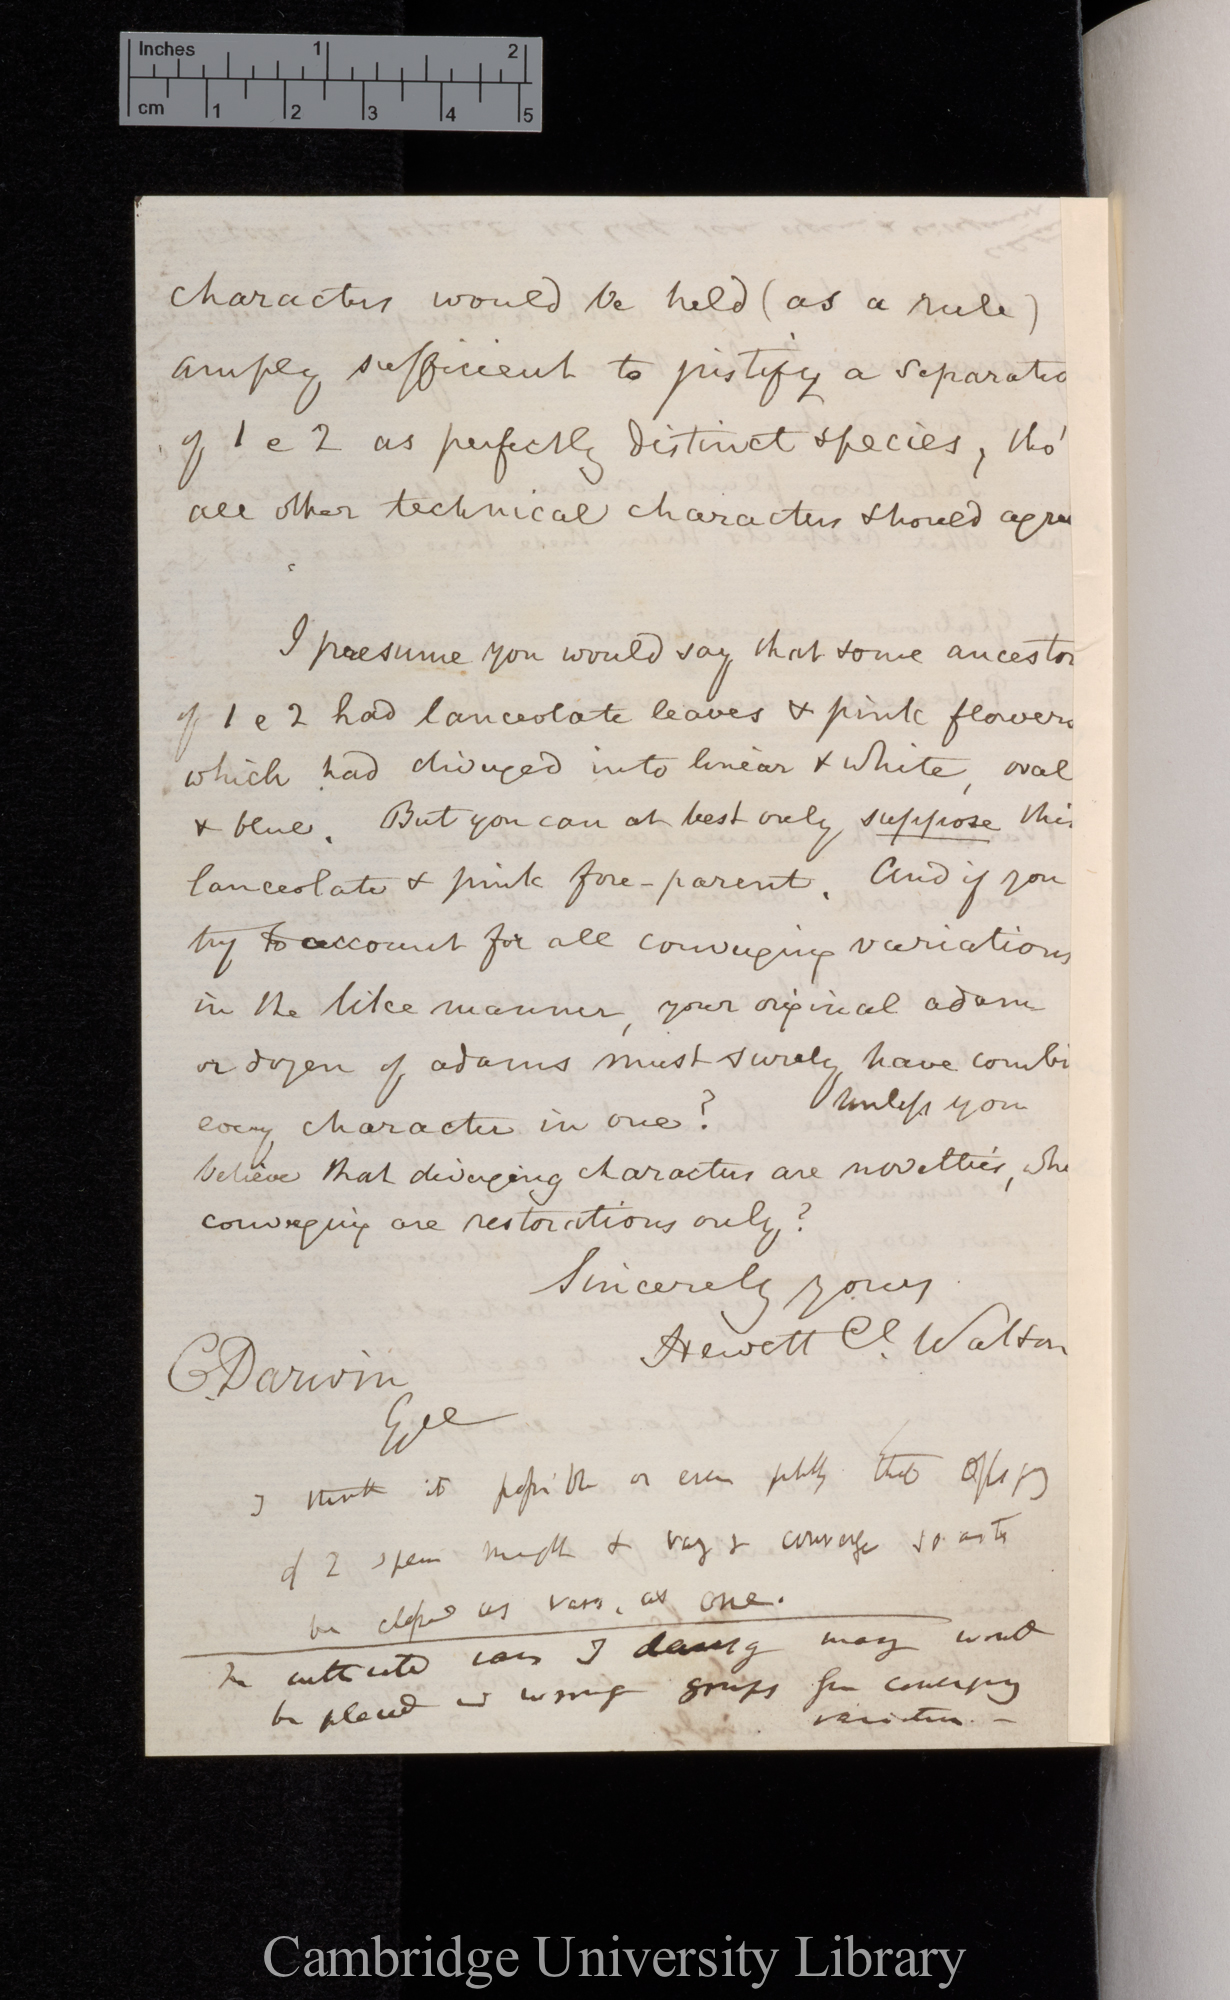 Inches 1 2
cm 1 2 3 4 5
characters would be held (as a rule)
amply sufficient to justify a separatio
of 1 & 2 as perfectly distinct species, tho'
all other technical characters should agree
I presume you would say that some ancestor
of 1 & 2 had lanceolate leaves & pink flowers
which had diverged into linear & white, oval
& blue. But you can at best only suppose this
lanceolate & pink fore-parent. And if you
try to account for all converging variations
in the like manner, your original adam
or dozen of adams must surely have combi
every character in one? Unless you
believe that diverging characters are novelties, whi
converging are restorations only?
Sincerely yours
Hewett C. Watson
C. Darwin
Esqe
I think it possible or even that offspg
of 2 species might & vary & converge so as to
be classed as vars. as one.
In cultivated vars I daresay many would
be placed in wrong groups from converging
varieties. —
Cambridge University Library